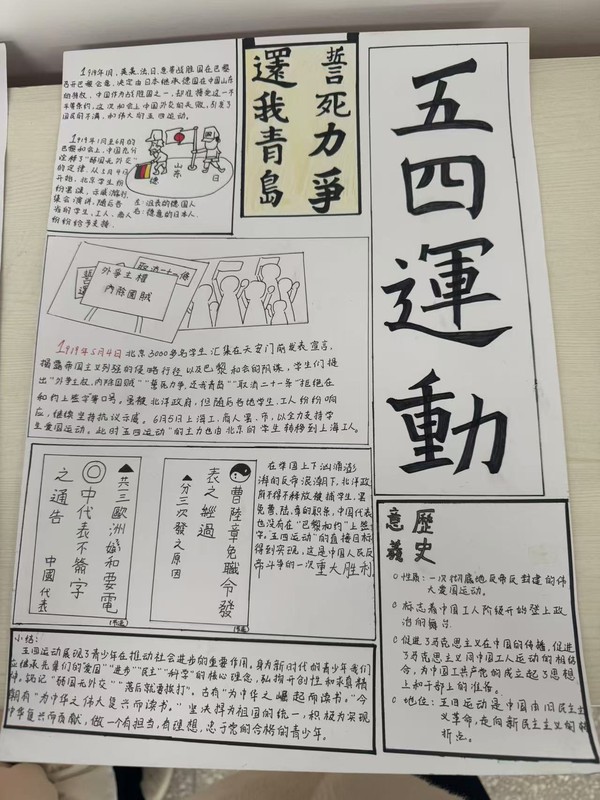 五四運動
誓死力爭
還我青島
1919年1月,英美、法、日、意等战胜国在巴黎
召开巴黎会议,决定由日本继承德国在中国山东
的特权,中国作为战胜国之一,却在接受这一不
平等条约,这次和会上中国外交的失败,引发了
国民的不满,和伟大的五四运动。
1919年1月至6月的
巴黎和会上,中国充分
诠释了"弱国无外交"
的定律,从5月4日
开始,北京学生纷
纷罢课,示威游行,
集会演讲,随后各
当的学生,工人,商人
纷纷给予支援
德 山东 日
左:沮丧的德国人
右:得意的日本人.
誓
還
取消二十一條
外爭主權
內除國賊
1919年5月4日 北京3000多名学生汇集在天安门前发表宣言,
揭露帝国主义列强的侵略行径以及巴黎和会的阴谋,学生们提
出"外争主权,内除国贼""誓死力争,还我青岛""取消二十一条"拒绝在
和约上签字等口号。虽被北洋政府,但随后各地学生、工人纷纷响
应,继续坚持抗议示威。6月5日上海工、商人罢、市,以全力支持学
生爱国运动。此时"五四运动"的主力也由北京的学生转移到上海工人。
▲共三歐洲媾和要電
◎中代表不簽字
之通告
中國代表
曹陸章免職令發
表之經過
▲分三次發之原因
在中国上下汹涌澎
湃的反帝浪潮下,北洋政
府不得不释放被捕学生,罢
免曹、陆、章的职条,中国代表
也没有在"巴黎和约"上签
字,五四运动"的直接目标
得到实现,这是中国人民反
帝斗争的一次重大胜利
歷史
意義
性质:一次彻底地反帝反封建的伟
大爱国运动。
标志着中国工人阶级开始登上政
治的舞台
促进了马克思主义在中国的传播,促进
了马克思主义同中国工人运动的相结
合,为中国工共产党的成立起了思想
上和干部上的准备。
地位:五四运动是中国由旧民主主
义革命,走向新民主主义的转
折点。
小结:
五四运动展现了青少年在推动社会进步的重要作用,身为新时代的青少年我们
应继承先辈们的"爱国""进步""民主""科学"的核心理念,弘扬开创性和求真精
神,铭记"弱国无外交""落后就要挨打",古有"为中华之崛起而读书。"今
朝有"为中华之伟大复兴而读书。"坚决捍为祖国的统一,积极为实现
中华复兴而贡献,做一个有担当,有理想,忠于党的合格的青少年。